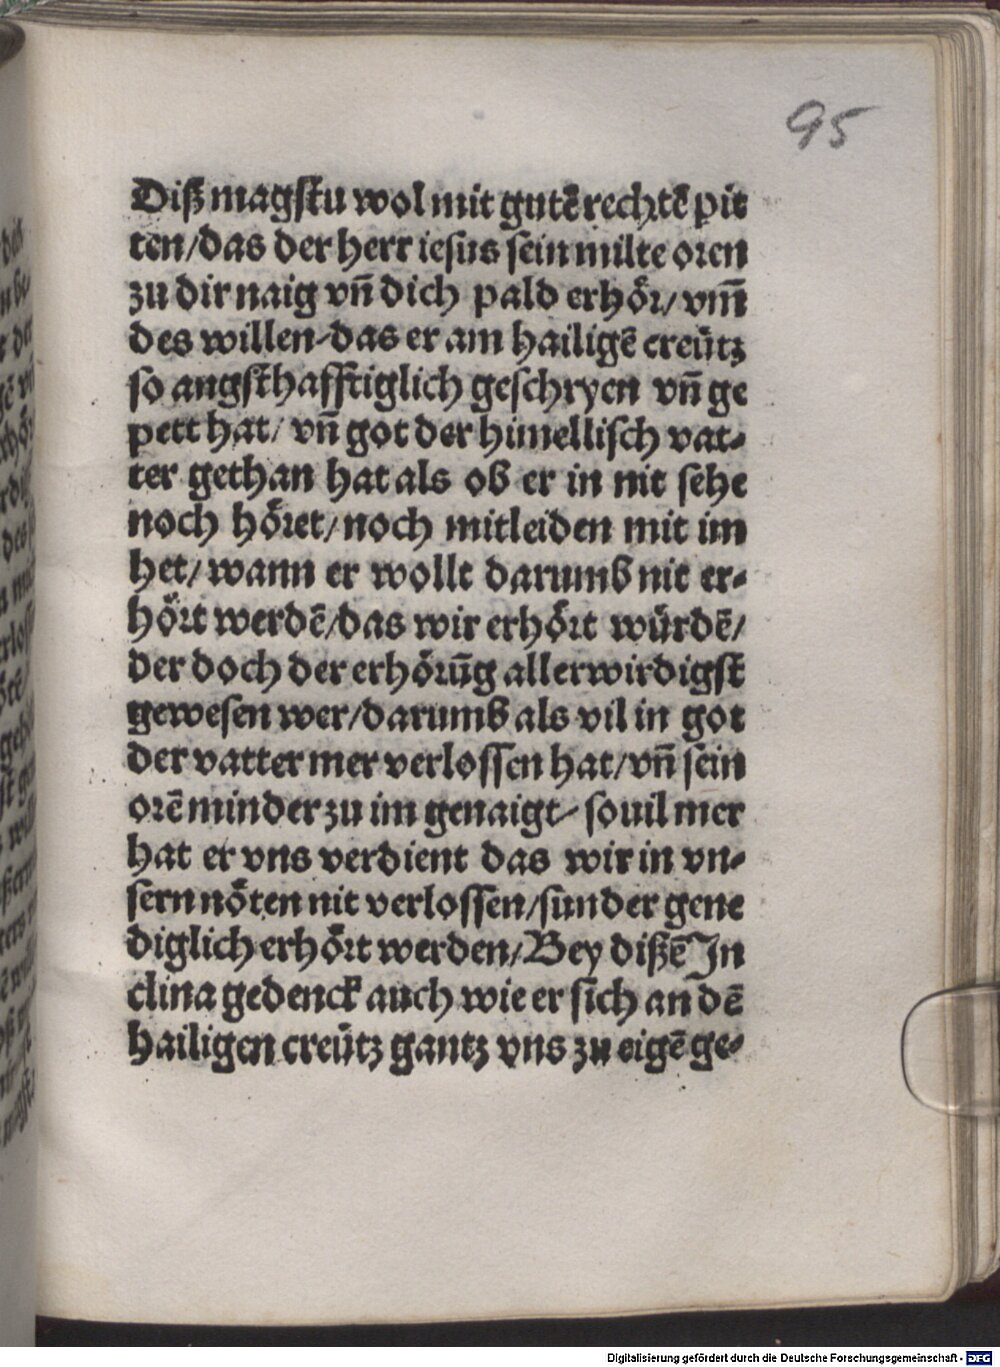 95
Diſz magſtu wol mit gutē rechtē pit
ten/das der herr ieſus ſein milte oren
zu dir naig vñ dich pald erhör/vm̄
des willen-das er am hailigē creütz
ſo angſthafftiglich geſchryen vñ ge
pett hat/vñ got der himelliſch vat-
ter gethan hat als ob er in nit ſehe
noch höret/noch mitleiden mit im
het/wann er wollt darumb nit er-
hört werdē/das wir erhört würdē/
der doch der erhörūg aller wirdigſt
geweſen wer/darumb als vil in got
der vatter mer verloſſen hat/vñ ſein
orē minder zu im genaigt-ſouil mer
hat er vns verdient das wir in vn-
ſern nöten nit verloſſen/ſunder gene
diglich erhört werden/Bey diſzē In
clina gedenck auch wie er ſich an dē
hailigen creütz gantz vns zu eigē ge-
Digitalisierung gefördert durch die Deutsche Forschungsgemeinschaft - DFG